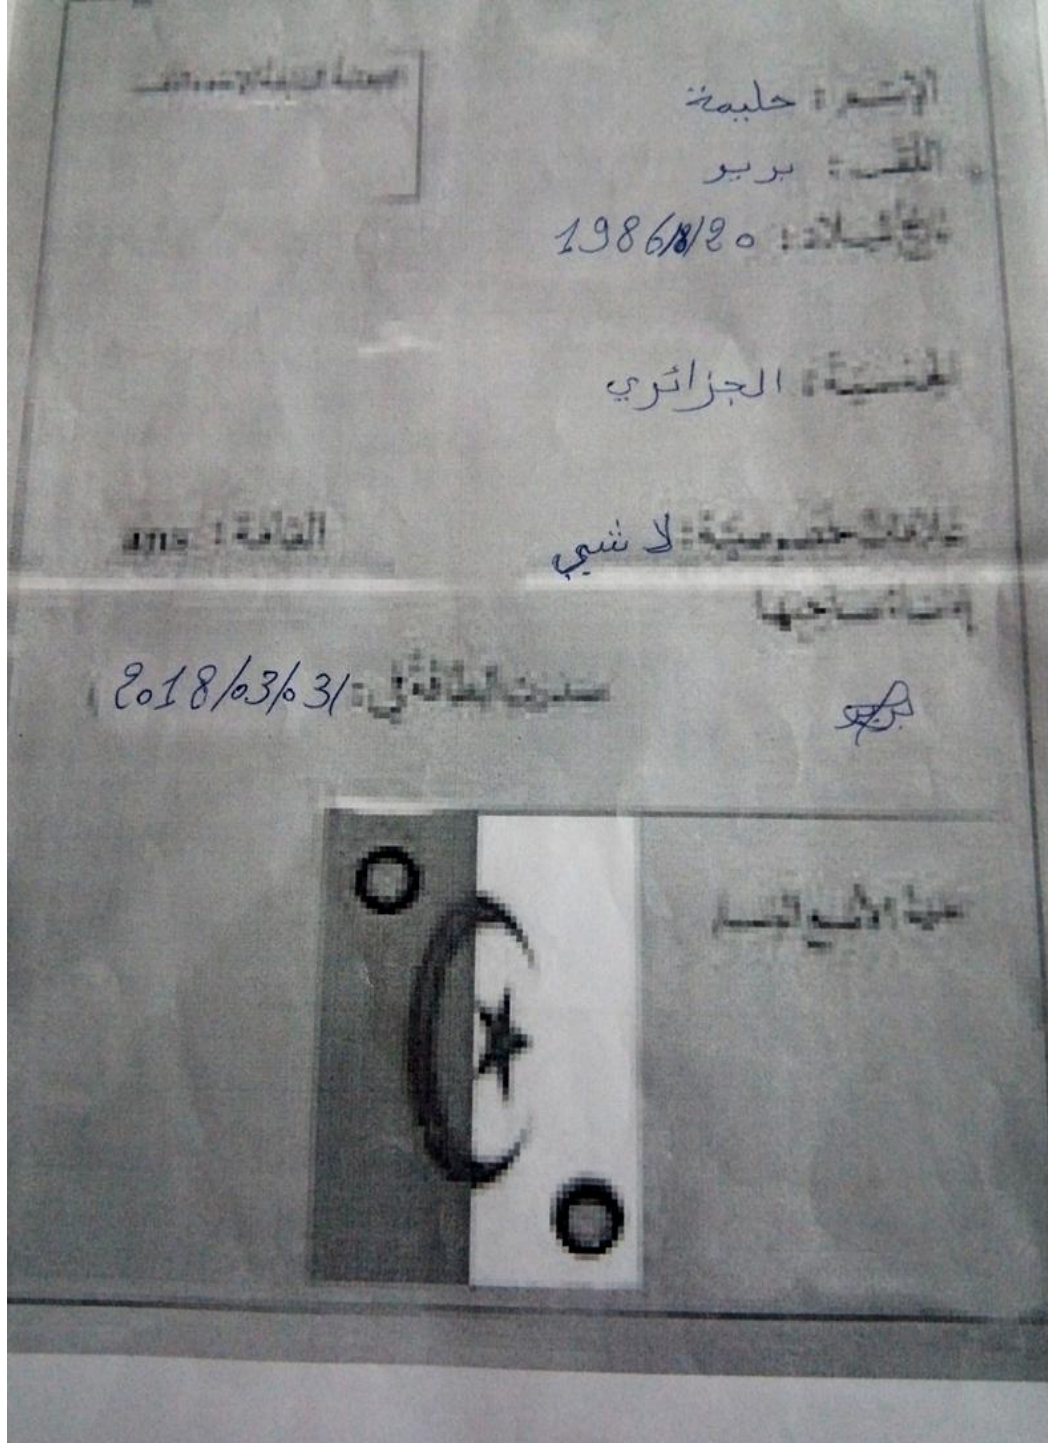 الإسم : حليمة
اللقب : بربو
تاريخ الميلاد : 1986/8/20
الجنسية : الجزائري
علامات خصوصية : لا شيي
القامة : ans
إمضاء صاحبها
صدرت البطاقة في : 2018/03/03/